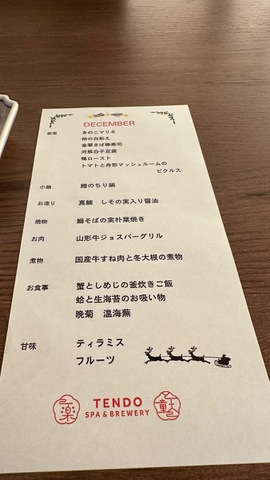 DECEMBER
前菜 きのこマリネ
柿の白和え
金華さば棒寿司
河豚白子豆腐
鴨ロースト
トマトと舟形マッシュルームの
ピクルス
小鍋 鱈のちり鍋
お造り 真鯛 しその実入り醤油
焼物 鰤そばの実朴葉焼き
お肉 山形牛ジョスパーグリル
煮物 国産牛すね肉と冬大根の煮物
お食事 蟹としめじの釜炊きご飯
蛤と生海苔のお吸い物
晩菊 温海蕪
甘味 ティラミス
フルーツ
TENDO
SPA & BREWERY